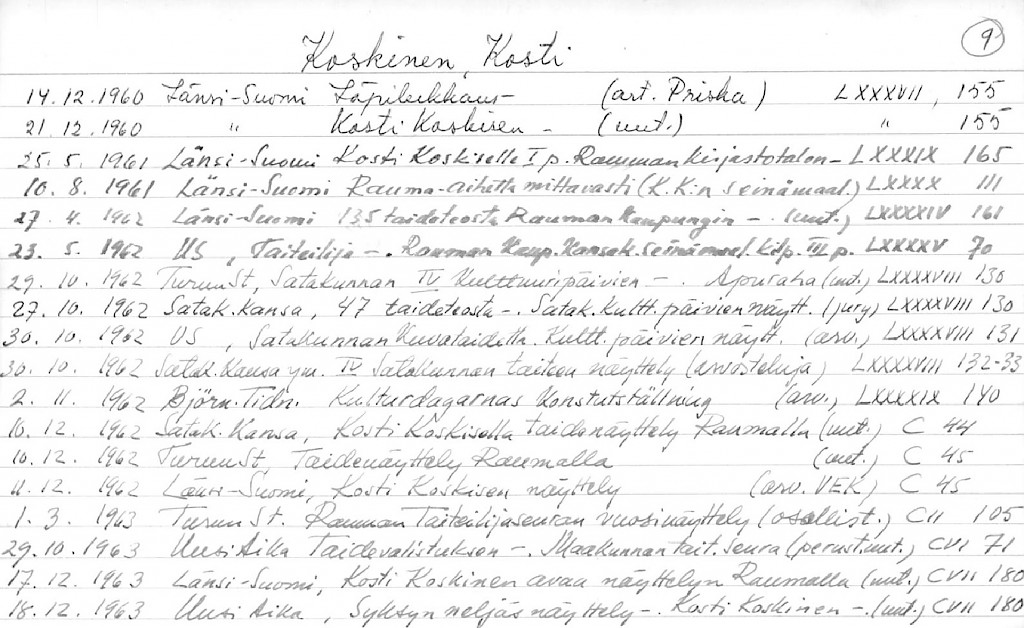 9
Koskinen, Kosti
14.12.1960 Länsi-Suomi Läpileikkaus- (art. Priska) LXXXVII, 155
21.12.1960 " Kosti Koskisen - (uut.) " 155
25. 5. 1961 Länsi-Suomi Kosti Koskiselle I p. Rauman kirjastotalon - LXXXIX 165
10. 8. 1961 Länsi-Suomi Rauma-aihetta mittavasti (K.K:n seinämaal.) LXXXX 111
27. 4. 1962 Länsi-Suomi 135 taideteosta Rauman Kaupungin - (uut.) LXXXXIV 161
23. 5. 1962 US, Taiteilija -. Rauman Kaup. Kansak. seinämaal. kilp. III p. LXXXXV 70
29. 10. 1962 Turun St, Satakunnan IV Kulttuuripäivien - . Apuraha (uut.) LXXXXVIII 130
27. 10. 1962 Satak. Kansa, 47 taideteosta -. Satak. Kultt. päivien näytt. (jury) LXXXXVIII 130
30. 10. 1962 US, Satakunnan Kuvataidetta. Kultt. päivien näytt. (arv.) LXXXXVIII 131
30. 10. 1962 Satak. Kansa ym. IV Satakunnan taiteen näyttely (arvosteluja) LXXXXVIII 132-33
2. 11. 1962 Björn. Tidn. Kulturdagarnas Konstutställning (arv.) LXXXXIX 140
10. 12. 1962 Satak. Kansa, Kosti Koskisella taidenäyttely Raumalla (uut.) C 44
10. 12. 1962 Turun St, Taidenäyttely Raumalla (uut.) C 45
11. 12. 1962 Länsi-Suomi, Kosti Koskisen näyttely (arv. VEK) C 45
1. 3. 1963 Turun St. Rauman Taiteilijaseuran vuosinäyttely (osallist.) CII 105
29. 10. 1963 Uusi Aika Taidevalistuksen -. Maakunnan tait. seura (perust. uut.) CVI 71
17. 12. 1963 Länsi-Suomi, Kosti Koskinen avaa näyttelyn Raumalla (uut.) CVII 180
18. 12. 1963 Uusi Aika, Syksyn neljäs näyttely -. Kosti Koskinen -. (uut.) CVII 180